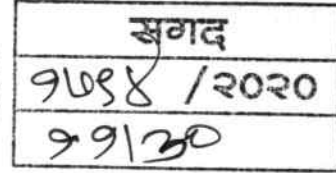 सुगद
१७९४ /२०२०
११|३०